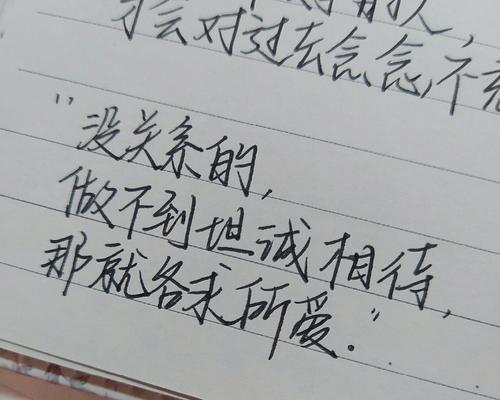 的人,
才会对过去念念不忘
"没关系的,
做不到坦诚相待,
那就各求所爱."